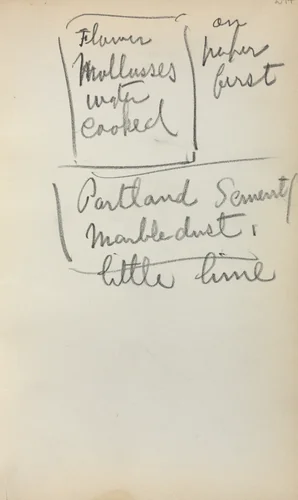 Flower
Mollusses
water
cooked
on
paper
first
Portland Sement
Marble dust,
little lime